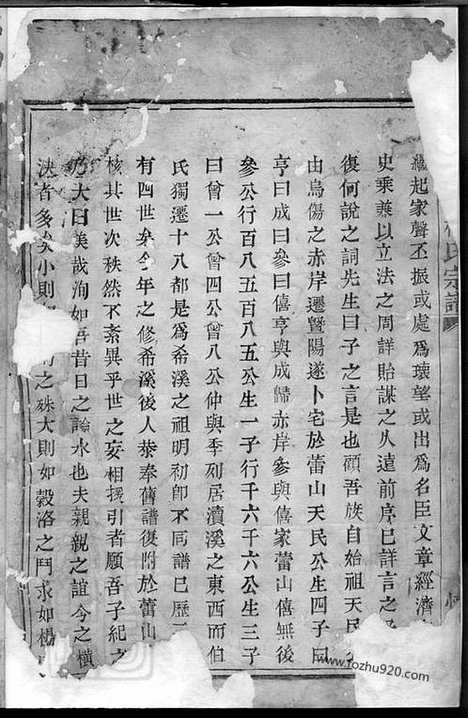 氏宗譜
繼起家聲丕振或處爲瓌望或出爲名臣文章經濟
史乘兼以立法之周詳貽謀之久遠前序已詳言之
復何說之詞先生曰子之言是也顧吾族自始祖天民
由烏傷之赤岸遷暨陽遂卜宅於蕾山天民公生四子曰
亨曰成曰參曰僖亨與成歸赤岸參與僖家蕾山僖無後
參公行百八五百八五公生一子行千六千六公生三子
曰曾一公曾四公曾八公仲與季列居瀆溪之東西而伯
氏獨遷十八都是爲希溪之祖明初卽不同譜已歷
有四世矣今年之修希溪後人恭奉舊譜復附於蕾山
核其世次秩然不紊異乎世之妄相援引者願吾子紀之
乃大曰美哉洵如吾昔日之論水也夫親親之誼今之橫
決者多矣小則之殊大則如穀洛之鬥求如楊
www.fozhu920.com